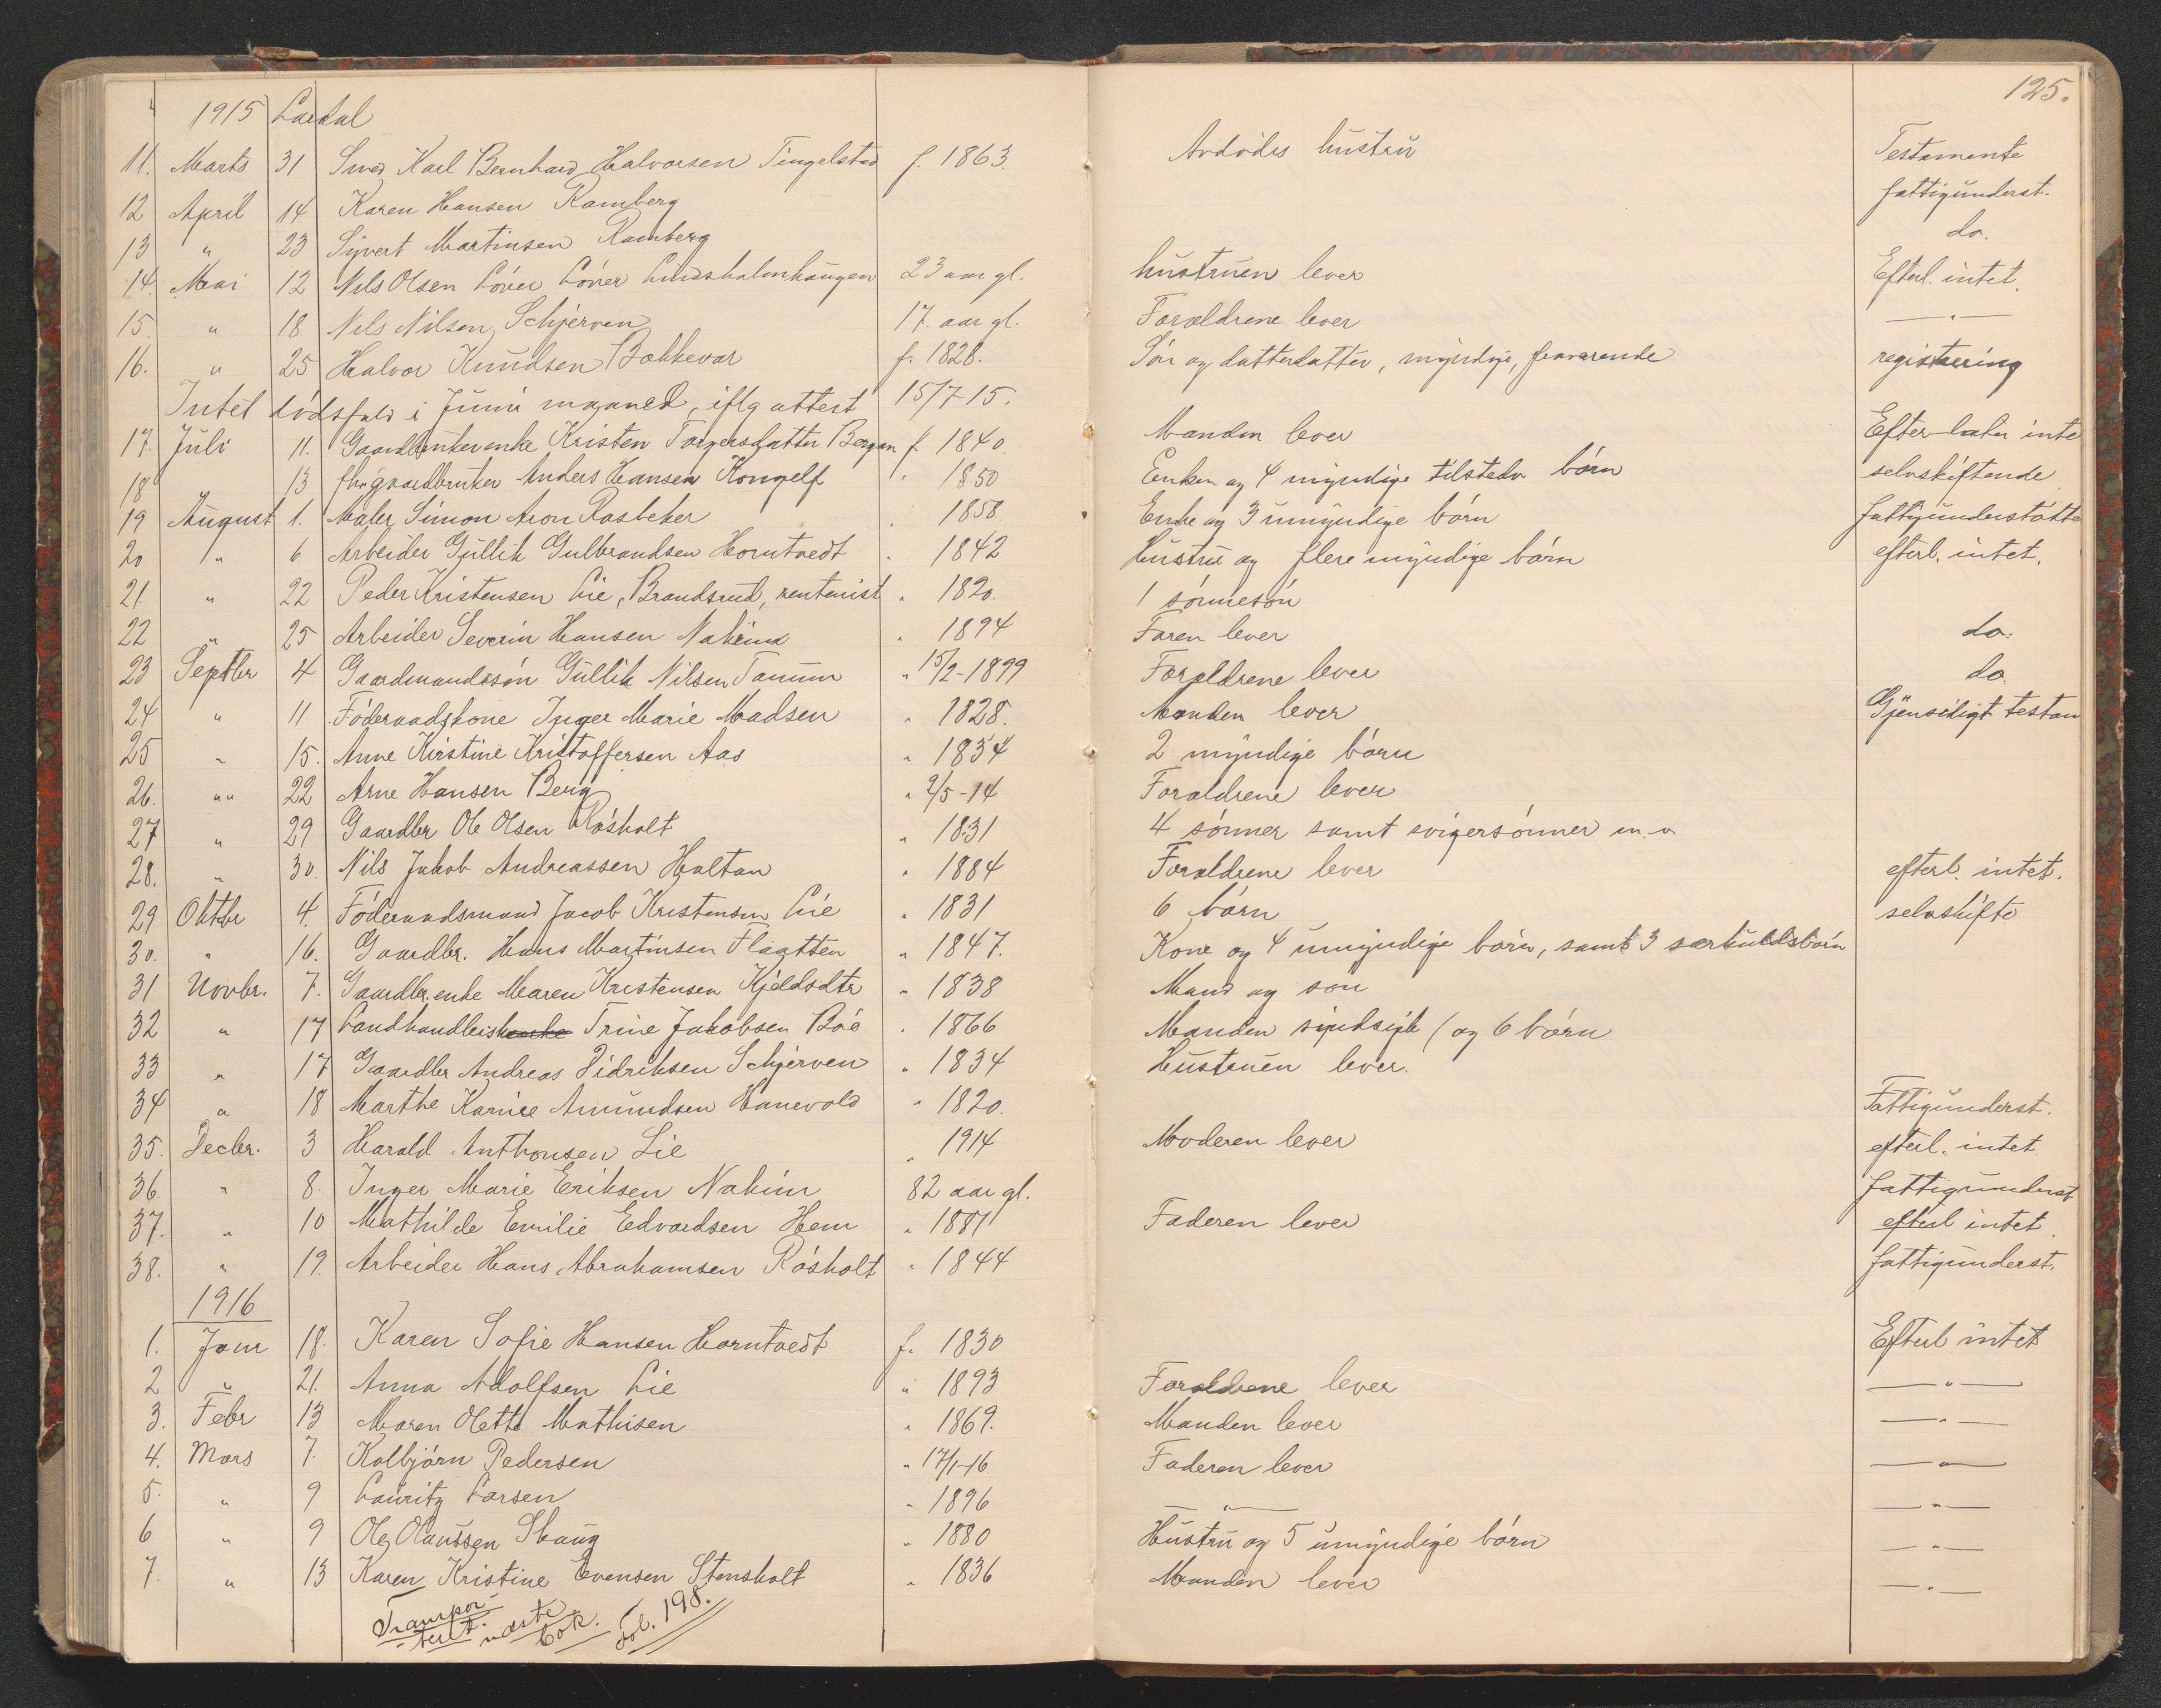 125.
1915 Lardal
11. Marts 31 Smed Karl Bernhard Halvorsen Tingelstad f. 1863. Avdødes hustru Testamente
12 April 14 Karen Hansen Ramberg fattigunderst.
13 " 23 Syvert Martinsen Ramberg do.
14. Mai 12 Nils Olsen Løver Løver 23 aar gl. hustruen lever Efterl. intet.
15. " 18 Nils Nilsen Schjerven 17. aar gl. Forældrene lever —"—
16. " 25 Halvor Knudsen Bakkevar f. 1828. Søn og datterdatter, myndige, fraværende registrering
Intet dødsfald i Juni maaned, iflg attest 15/7-15.
17. Juli 11. Gaardbrukerenke Kristen Torgersdatter Bergan f. 1840. Manden lever Efterlater inte
18 13 fhv. gaardbruker Anders Hansen Kongelf " 1850 Enken og 4 myndige tilstedv børn selvskiftende
19 August 1. Maler Simon Aron Rasbeker " 1858 Enke og 3 umyndige børn fattigunderstøtte
20 " 6 Arbeider Gullik Gulbrandsen Horntvedt " 1842 Hustru og flere myndige børn efterl. intet.
21. " 22 Peder Kristensen Lie, Brandsrud, rentenist " 1820. 1 sønnesøn
22 " 25 Arbeider Severin Hansen Nakim " 1894 Faren lever do.
23 Septbr 4 Gaardmandssøn Gullik Nilsen Tanum " 15/2-1899 Forældrene lever do
24 " 11 Føderaadskone Inger Marie Madsen " 1828. Manden lever Gjensidigt testam
25 " 15. Anne Kirstine Kristoffersen Aas " 1834 2 myndige børn
26. " " 22 Arne Hansen Berg " 2/5-14 Forældrene lever
27 " 29 Gaardbr Ole Olsen Røsholt " 1831 4 sønner samt svigersønner m.v.
28. " 30. Nils Jakob Andreassen Holtan " 1884 Forældrene lever efterl. intet.
29 Oktbr 4. Føderaadsmand Jacob Kristensen Lie " 1831 6 børn selvskifte
30. " 16. Gaardbr. Hans Martinsen Flaatten " 1847. Kone og 4 umyndige børn, samt 3 særkuldsbørn
31 Novbr. 7. Gaardbr. enke Maren Kristensen Kjeldsdtr " 1838 Mand og søn
32 " 17 Trine Jakobsen Bøe " 1866 Manden (og 6 børn
33 " 17 Gaardbr Andreas Didriksen Schjerven " 1834 Hustruen lever.
34 " 18 Marthe Karine Amundsen Hanevold " 1820. Fattigunderst.
35. Decbr. 3 Harald Anthonsen Lie " 1914 Moderen lever efterl. intet
36. " 8. Inger Marie Eriksen Nakim 82 aar gl. fattigunderst
37. " 10 Mathilde Emilie Edvardsen Hem " 1881 Faderen lever efterl intet.
38. " 19. Arbeider Hans Abrahamsen Røsholt " 1844 fattigunderst.
1916
1. Janr 18. Karen Sofie Hansen Horntvedt f. 1830 Efterl intet
2 " 21. Anna Adolfsen Lie " 1893 Forældrene lever —"—
3. Febr 13 Maren Olette Mathisen " 1869. Manden lever —"—
4. Mars 7. Kolbjørn Pedersen " 17/1-16 Faderen lever —"—
5. " 9 Lauritz Larsen " 1896 —"— —"—
6 " 9 Ole Olaussen Skaug " 1880 Hustru og 5 umyndige børn —"—
7. " 13 Karen Kristine Evensen Stensholt " 1836 Manden lever —"—
Transpor-
tert næste
bok. fol. 198.